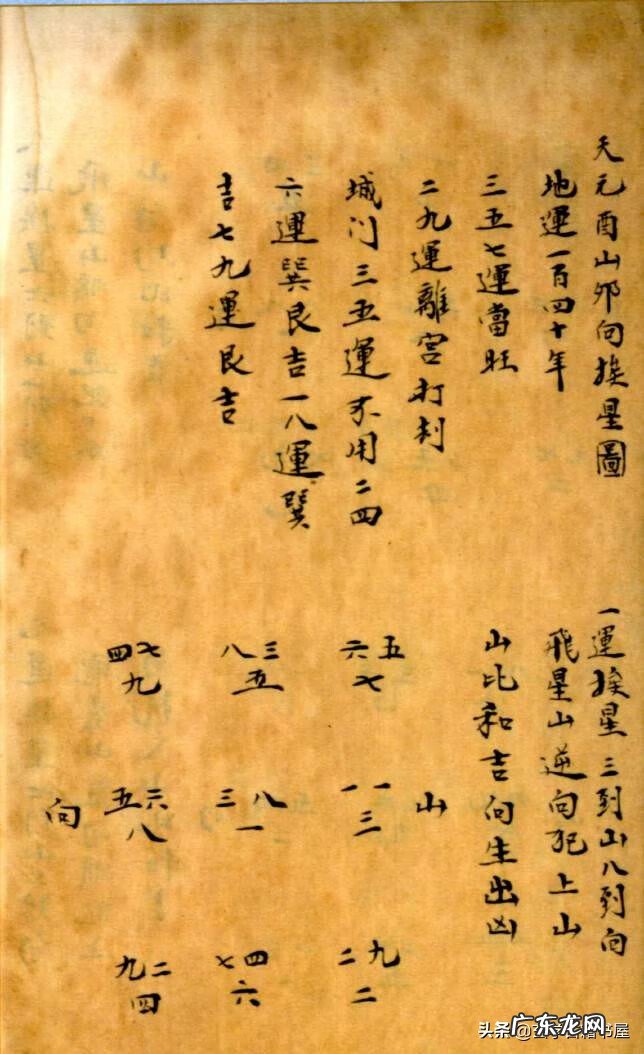 天元酉山卯向挨星圖
地運一百四十年
三五七運當旺
二九運離宮打刦
城门三五運不用二四
六運巽艮吉一八運巽
吉七九運艮吉
一運挨星三到山八到向
飛星山逆向犯上山
山比和吉向生出凶
山
六五
七
一一
三
二九
二
八三
五
三八
一
七四
六
四七
九
五六
八
九二
四
向
头条
广东龙网
书屋